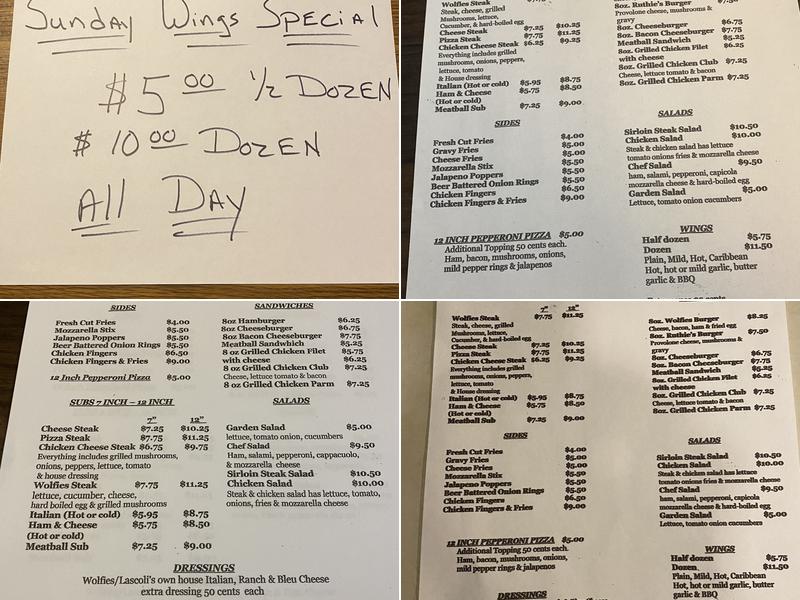 Sunday Wings Special
$5.00 ½ Dozen
$10.00 Dozen
All Day
Wolfies Steak $7.75
Steak, cheese, grilled
Mushrooms, lettuce,
Cucumber, & hard-boiled egg
Cheese Steak $7.25 $10.25
Pizza Steak $7.75 $11.25
Chicken Cheese Steak $6.25 $9.25
Everything includes grilled
mushrooms, onions, peppers,
lettuce, tomato
& House dressing
Italian (Hot or cold) $5.95 $8.75
Ham & Cheese $5.75 $8.50
(Hot or cold)
Meatball Sub $7.25 $9.00
SIDES
Fresh Cut Fries $4.00
Gravy Fries $5.00
Cheese Fries $5.00
Mozzarella Stix $5.50
Jalapeno Poppers $5.50
Beer Battered Onion Rings $5.50
Chicken Fingers $6.50
Chicken Fingers & Fries $9.00
12 INCH PEPPERONI PIZZA $5.00
Additional Topping 50 cents each.
Ham, bacon, mushrooms, onions,
mild pepper rings & jalapenos
8oz. Ruthie's Burger $7.50
Provolone cheese, mushrooms &
gravy
8oz. Cheeseburger $6.75
8oz. Bacon Cheeseburger $7.75
Meatball Sandwich $5.25
8oz. Grilled Chicken Filet $6.25
with cheese
8oz. Grilled Chicken Club $7.25
Cheese, lettuce tomato & bacon
8oz. Grilled Chicken Parm $7.25
SALADS
Sirloin Steak Salad $10.50
Chicken Salad $10.00
Steak & chicken salad has lettuce
tomato onions fries & mozzarella cheese
Chef Salad $9.50
ham, salami, pepperoni, capicola
mozzarella cheese & hard-boiled egg
Garden Salad $5.00
Lettuce, tomato onion cucumbers
WINGS
Half dozen $5.75
Dozen $11.50
Plain, Mild, Hot, Caribbean
Hot, hot or mild garlic, butter
garlic & BBQ
SIDES
Fresh Cut Fries $4.00
Mozzarella Stix $5.50
Jalapeno Poppers $5.50
Beer Battered Onion Rings $5.50
Chicken Fingers $6.50
Chicken Fingers & Fries $9.00
12 Inch Pepperoni Pizza $5.00
SANDWICHES
8oz Hamburger $6.25
8oz Cheeseburger $6.75
8oz Bacon Cheeseburger $7.75
Meatball Sandwich $5.25
8 oz Grilled Chicken Filet $5.75
with cheese $6.25
8 oz Grilled Chicken Club $7.25
Cheese, lettuce tomato & bacon
8 oz Grilled Chicken Parm $7.25
SUBS 7 INCH – 12 INCH
7" 12"
Cheese Steak $7.25 $10.25
Pizza Steak $7.75 $11.25
Chicken Cheese Steak $6.75 $9.75
Everything includes grilled mushrooms,
onions, peppers, lettuce, tomato
& house dressing
Wolfies Steak $7.75 $11.25
lettuce, cucumber, cheese,
hard boiled egg & grilled mushrooms
Italian (Hot or cold) $5.95 $8.75
Ham & Cheese $5.75 $8.50
(Hot or cold)
Meatball Sub $7.25 $9.00
SALADS
Garden Salad $5.00
lettuce, tomato onion, cucumbers
Chef Salad $9.50
Ham, salami, pepperoni, cappacuolo,
& mozzarella cheese
Sirloin Steak Salad $10.50
Chicken Salad $10.00
Steak & chicken salad has lettuce, tomato,
onions, fries & mozzarella cheese
DRESSINGS
Wolfies/Lascoli's own house Italian, Ranch & Bleu Cheese
extra dressing 50 cents each
7" 12"
Wolfies Steak $7.75 $11.25
Steak, cheese, grilled
Mushrooms, lettuce,
Cucumber, & hard-boiled egg
Cheese Steak $7.25 $10.25
Pizza Steak $7.75 $11.25
Chicken Cheese Steak $6.25 $9.25
Everything includes grilled
mushrooms, onions, peppers,
lettuce, tomato
& House dressing
Italian (Hot or cold) $5.95 $8.75
Ham & Cheese $5.75 $8.50
(Hot or cold)
Meatball Sub $7.25 $9.00
SIDES
Fresh Cut Fries $4.00
Gravy Fries $5.00
Cheese Fries $5.00
Mozzarella Stix $5.50
Jalapeno Poppers $5.50
Beer Battered Onion Rings $5.50
Chicken Fingers $6.50
Chicken Fingers & Fries $9.00
12 INCH PEPPERONI PIZZA $5.00
Additional Topping 50 cents each.
Ham, bacon, mushrooms, onions,
mild pepper rings & jalapenos
DRESSINGS
8oz. Wolfies Burger $8.25
Cheese, bacon, ham & fried egg
8oz. Ruthie's Burger $7.50
Provolone cheese, mushrooms &
gravy
8oz. Cheeseburger $6.75
8oz. Bacon Cheeseburger $7.75
Meatball Sandwich $5.25
8oz. Grilled Chicken Filet $6.25
with cheese
8oz. Grilled Chicken Club $7.25
Cheese, lettuce tomato & bacon
8oz. Grilled Chicken Parm $7.25
SALADS
Sirloin Steak Salad $10.50
Chicken Salad $10.00
Steak & chicken salad has lettuce
tomato onions fries & mozzarella cheese
Chef Salad $9.50
ham, salami, pepperoni, capicola
mozzarella cheese & hard-boiled egg
Garden Salad $5.00
Lettuce, tomato onion cucumbers
WINGS
Half dozen $5.75
Dozen $11.50
Plain, Mild, Hot, Caribbean
Hot, hot or mild garlic, butter
garlic & BBQ